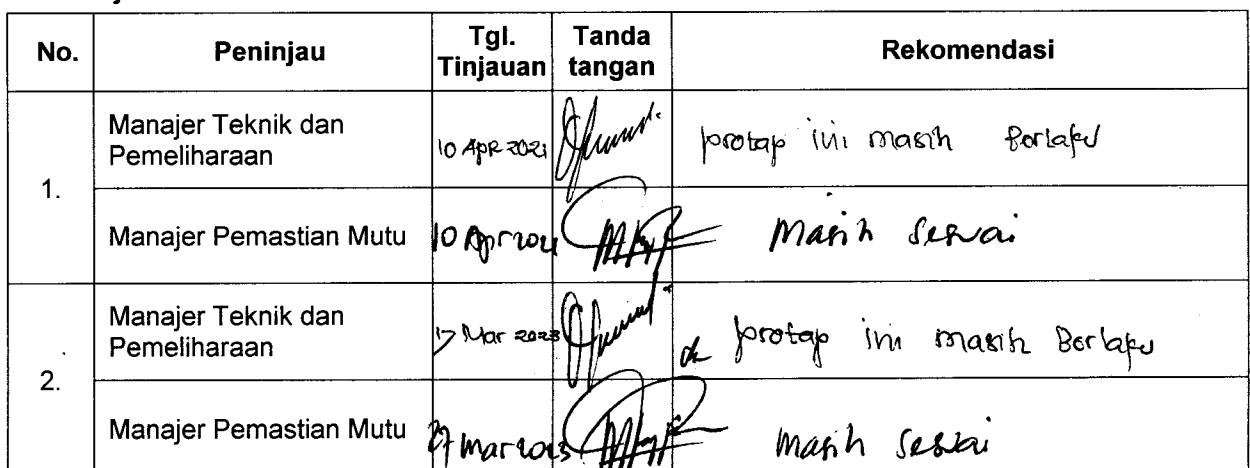 No. Peninjau Tgl. Tinjauan Tanda tangan Rekomendasi
1.
Manajer Teknik dan Pemeliharaan 10 Apr 2021 protap ini masih Berlaku
Manajer Pemastian Mutu 10 Apr 2021 Masih sesuai
2.
Manajer Teknik dan Pemeliharaan 17 Mar 2023 protap ini masih Berlaku
Manajer Pemastian Mutu Mar 2023 Masih sesuai